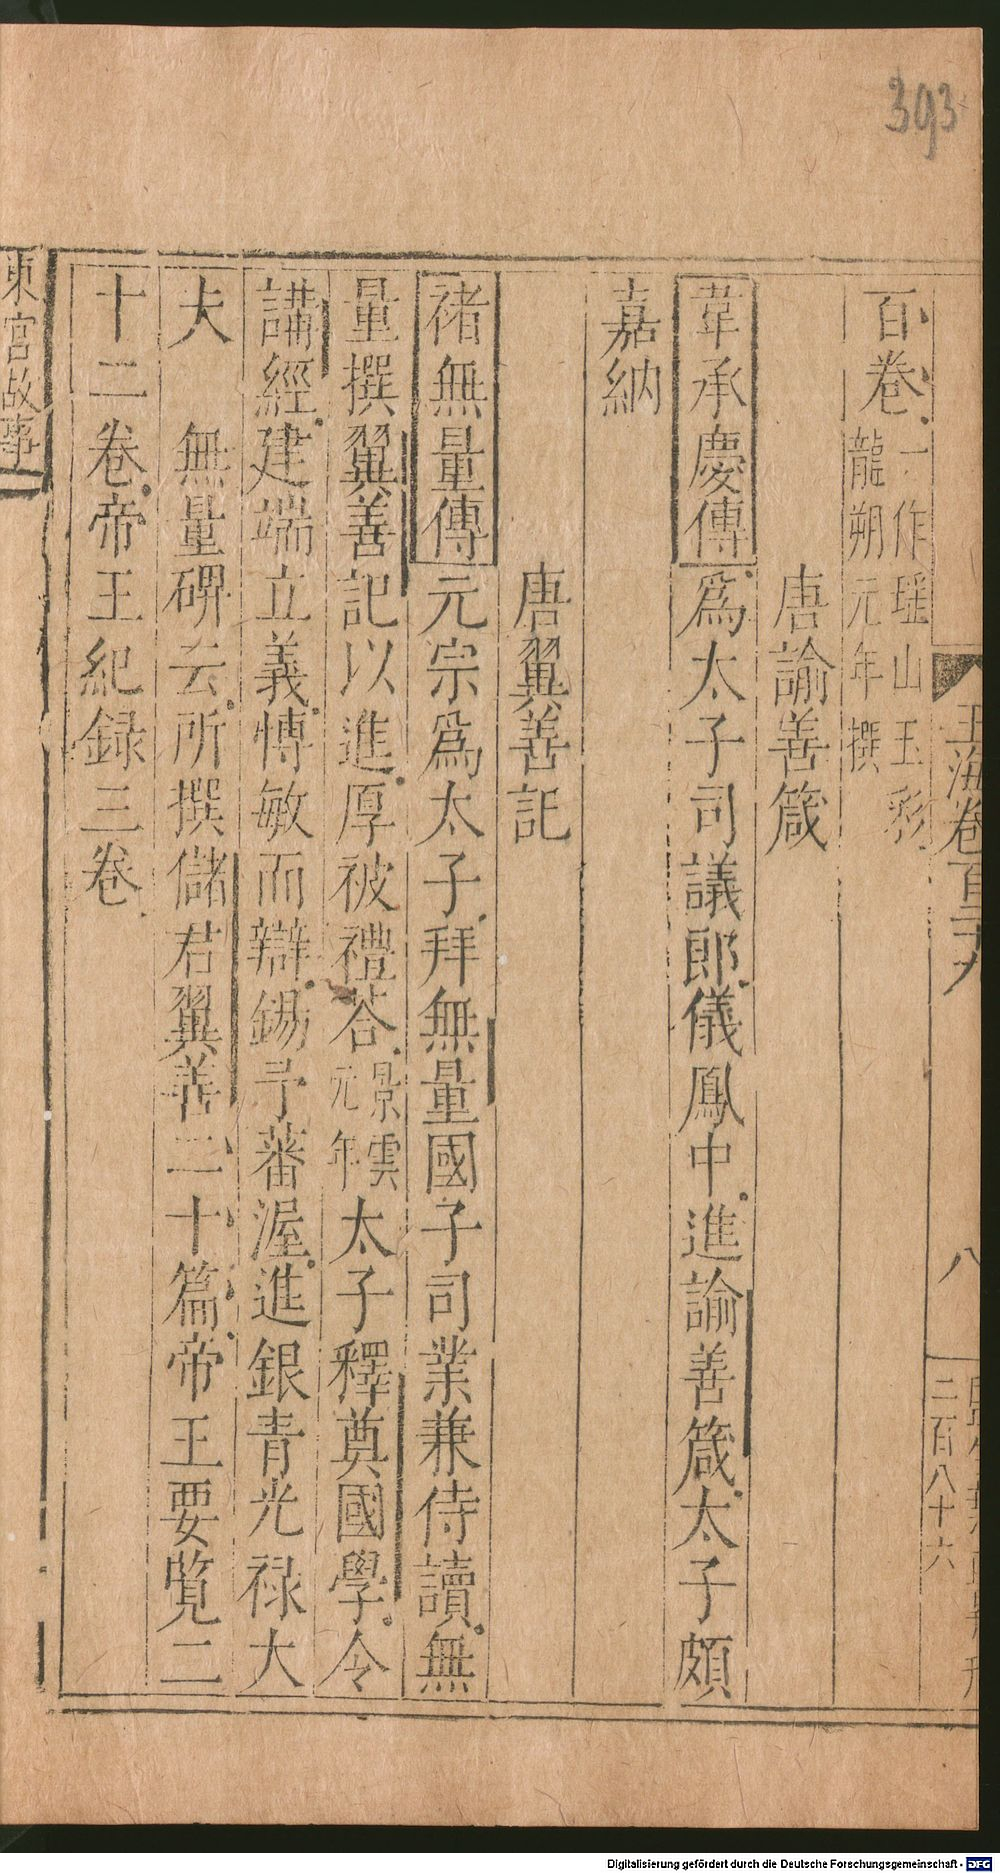 393
玉海卷百二十九
八
二百八十六
百卷
一作瑶山玉彩
龍朔元年撰
唐諭善箴
韋承慶傳爲太子司議郎儀鳳中進諭善箴太子頗
嘉納
唐翼善記
禇無量傳元宗爲太子拜無量國子司業兼侍讀無
量撰翼善記以進厚被禮荅景雲元年太子釋奠國學令
講經建端立義博敏而辯錫予蕃渥進銀青光禄大
夫 無量碑云所撰儲君翼善二十篇帝王要覧二
十二卷帝王紀録三卷
東宫故事
Digitalisierung gefördert durch die Deutsche Forschungsgemeinschaft - DFG